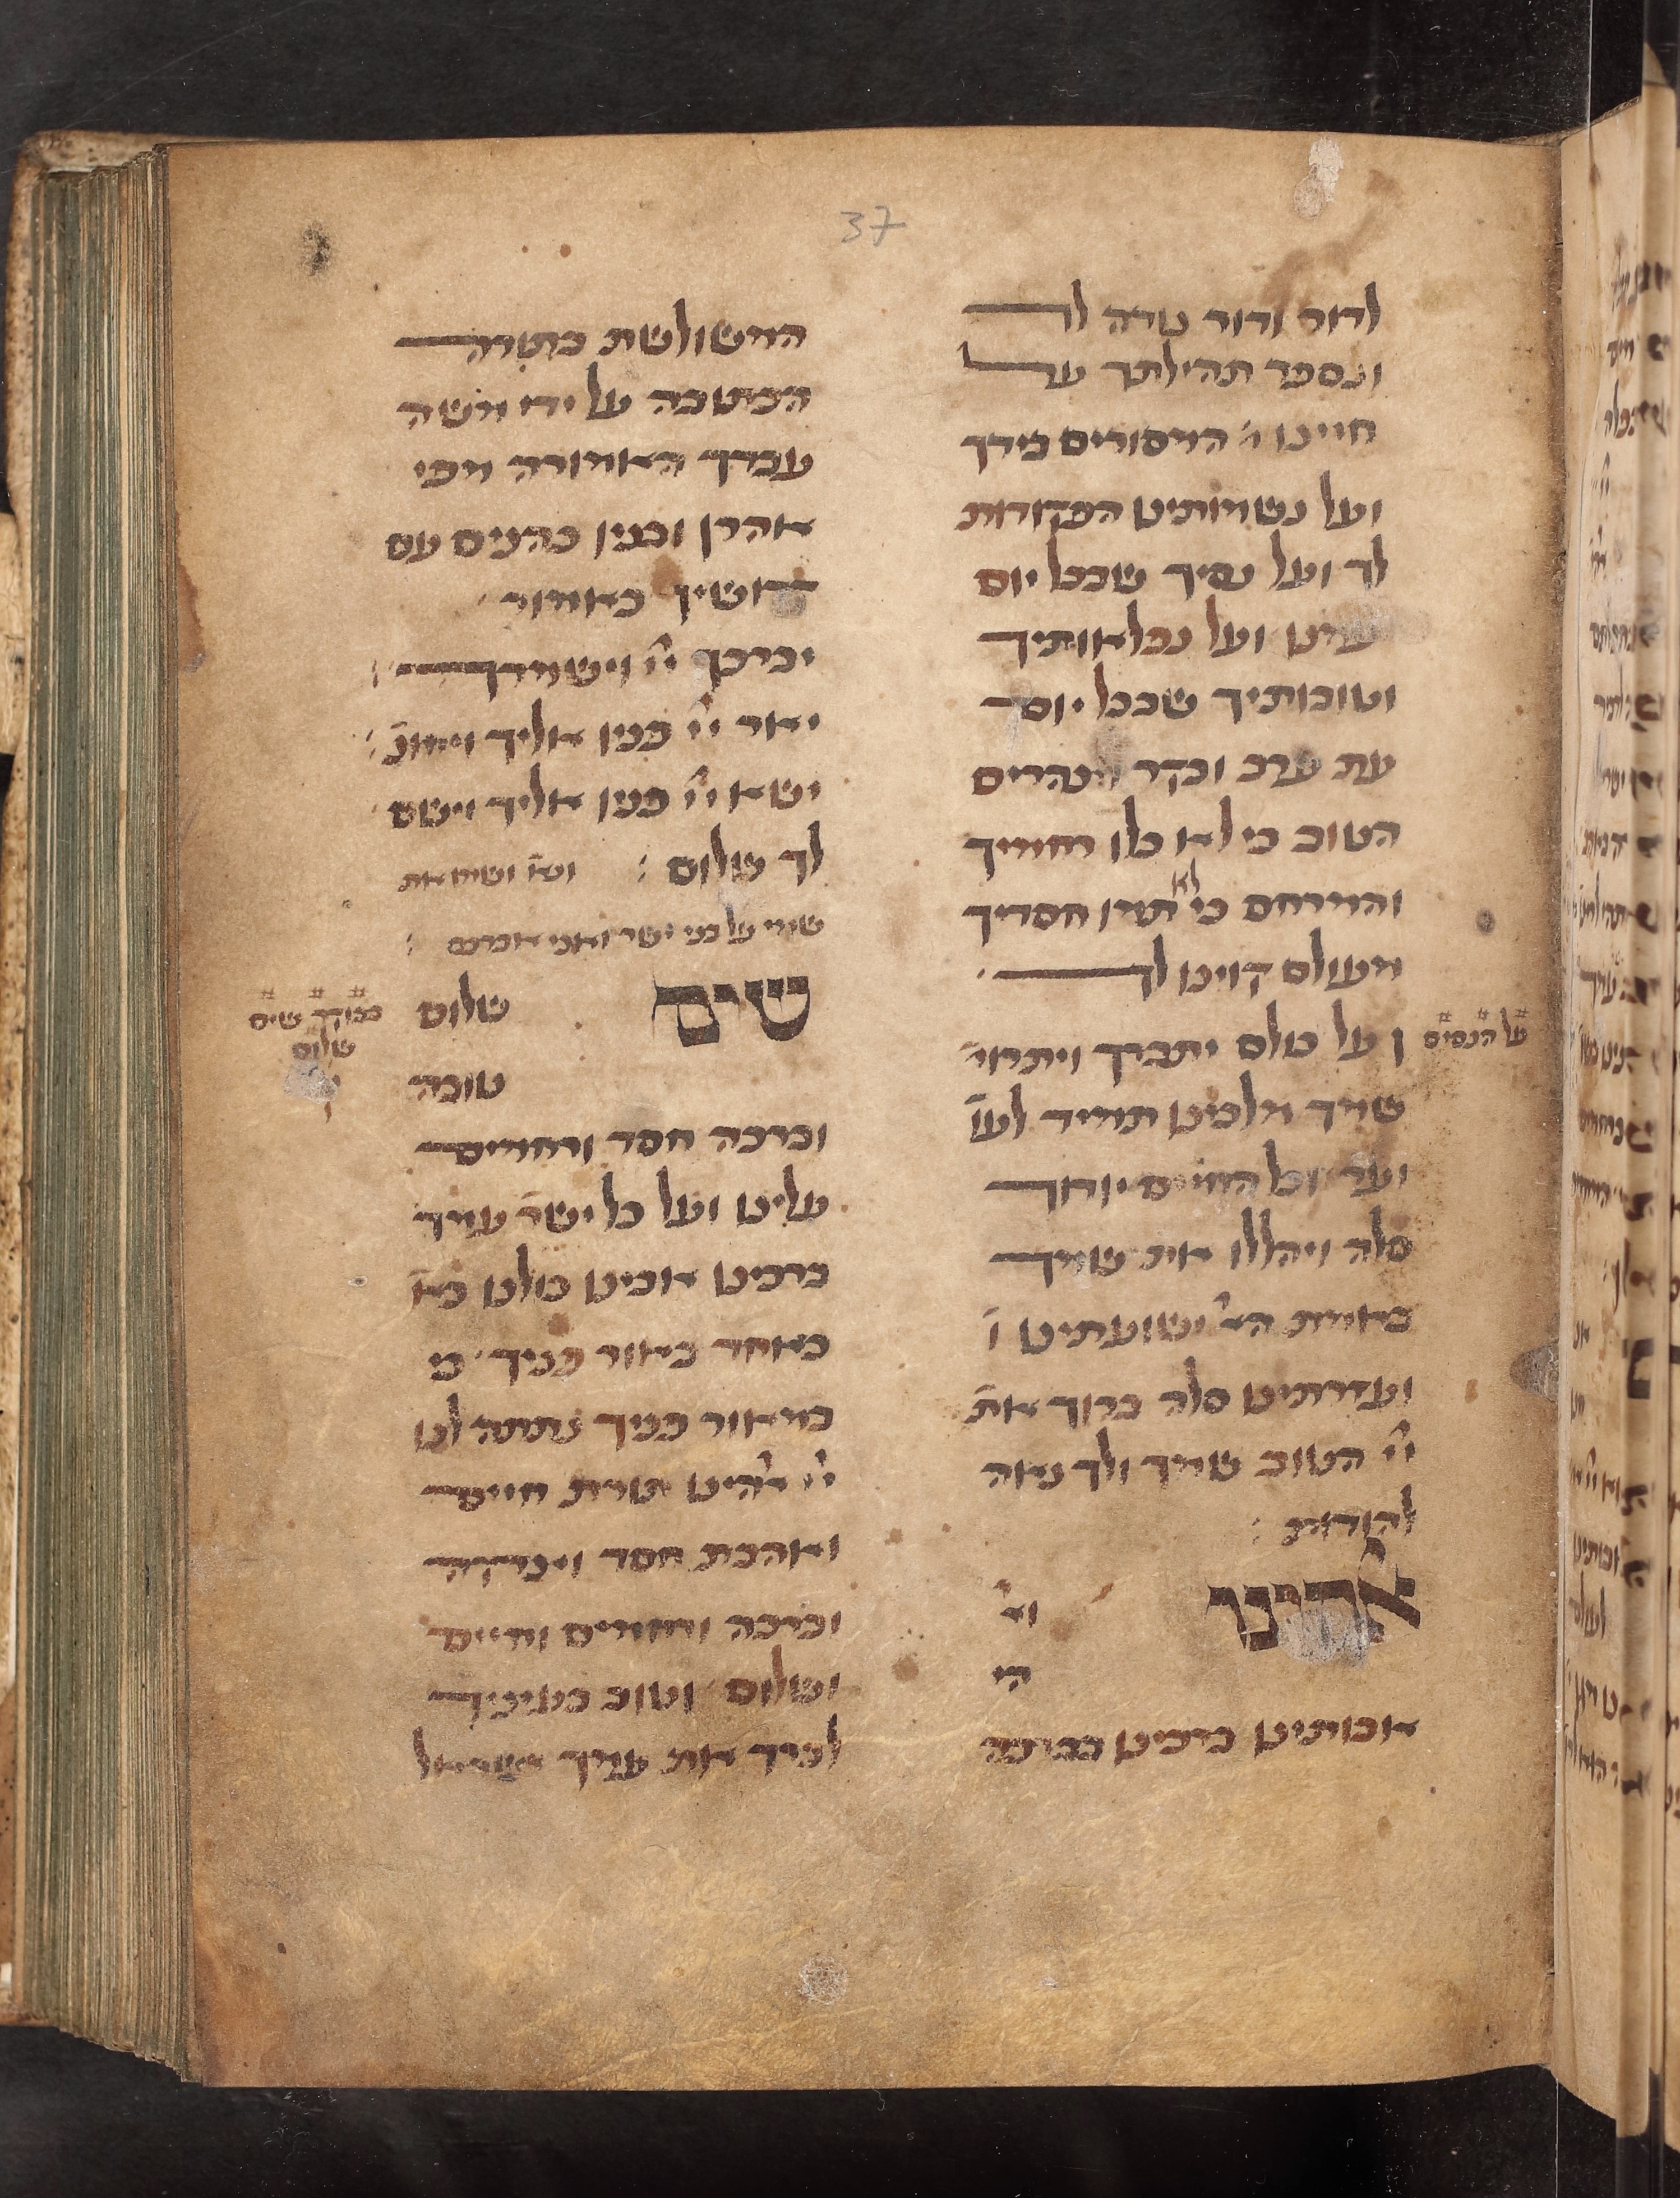 37
לדור ודור נודה לך
ונספר תהילתך על
חיינו המסורים בידך
ועל נשמותינו הפקודות
לך ועל נסיך שבכל יום
עמנו ועל נפלאותיך
וטובותיך שבכל יום
עת ערב ובקר וצהרים
הטוב כי לא כלו רחמיך
והמרחם כי לא תמו חסדיך
מעולם קוינו לך
על הנסים
ועל כולם יתברך ויתרומ׳
שמך מלכינו תמיד לעו׳
ועד וכל החיים יודוך
סלה ויהללו את שמך
באמת הא׳ ישועתינו ו
ועזרתינו סלה ברוך את׳
יי׳ הטוב שמך ולך נאה
להודות :
אלהינו וא׳
הי
אבותינו ברכינו בברכה
המשולשת בתורה
הכתובה על ידי משה
עבדך האמורה מפי
אהרן ובניו כהנים עם
קדושיך כאמור
יברכך יי׳ וישמרך
יאר יי׳ פניו אליך ויחונ׳
ישא יי׳ פניו אליך וישם
לך שלום : ונא׳ ושימו את
שמי על בני ישר׳ ואני אברכם :
שים שלום
בבוקר שים
שלום
טובה
וברכה חסד ורחמים
עלינו ועל כל ישר׳ עמך
ברכינו אבינו כולנו כא׳
כאחד באור פניך כי
במאור פניך נתתה לנו
יי׳ אלהינו תורת חיים
ואהבת חסד וצדקה
וברכה ורחמים וחיים
ושלום וטוב בעיניך
לברך את עמך ישראל